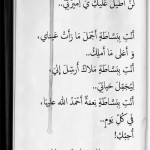 لَنْ أُطِيلَ عَلَيْكِ يَ أَمِيرَتِي..
أَنْتِ بِبَسَاطَةٍ أَجْمَلُ مَا رَأَتْ عَيْنَايَ،
وَ أَغْلَى مَا أَمْلِكُ..
أَنْتِ بِبَسَاطَةٍ مَلَاكٌ أُرْسِلَ إِلَيَّ،
لِيُجَمِّلَ حَيَاتِي..
أَنْتِ بِبَسَاطَةٍ نِعْمَةٌ أَحْمَدُ اللهَ عَلَيْهَا،
فِي كُلِّ يَوْمٍ..
أُحِبُّكِ!